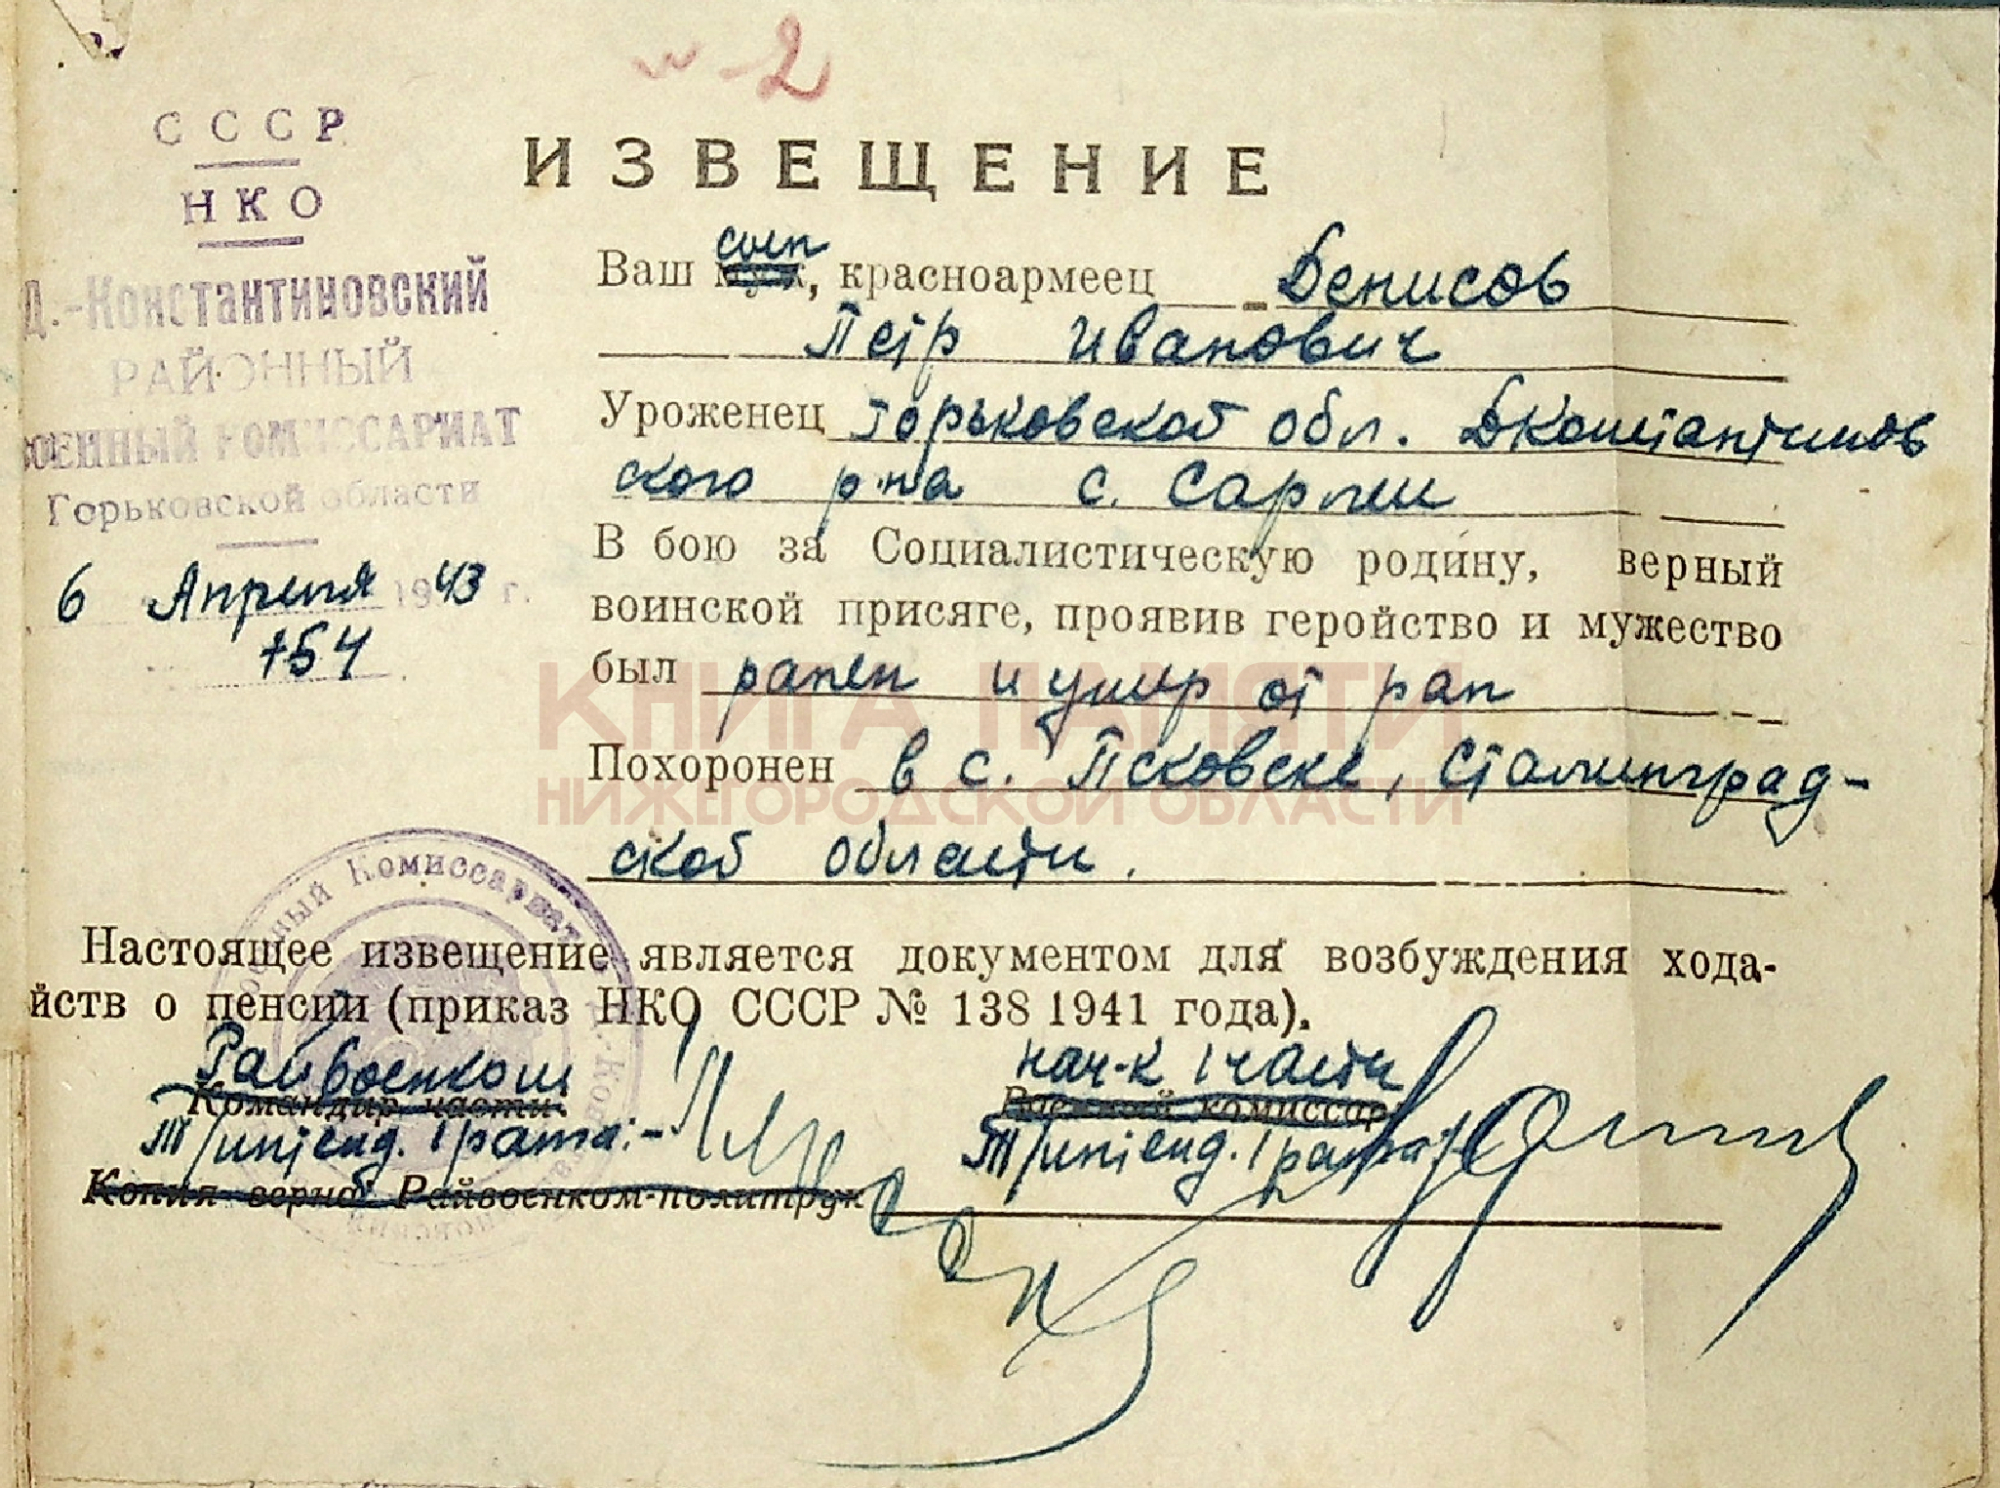 и-2
СССР
НКО
Д.-Константиновский
РАЙОННЫЙ
ВОЕННЫЙ КОМИССАРИАТ
Горьковской области
6 Апреля 1943 г.
754
ИЗВЕЩЕНИЕ
Ваш муж, сын, красноармеец Денисов
Петр Иванович
Уроженец Горьковской обл. ДКонстантинов
ского р-на с. Сарлеи
В бою за Социалистическую родину, верный
воинской присяге, проявив геройство и мужество
был ранен и умер от ран
Похоронен в с. Псковске, Сталинград-
ской области.
Настоящее извещение является документом для возбуждения хода-
йств о пенсии (приказ НКО СССР № 138 1941 года).
Райвоенком
Командир части
Т/интенд. 1 ранга:-
Нач-к 1 части
Военный комиссар
Т/интенд. 1 ранга:-
Копия верна: Райвоенком-политрук
Военный Комиссариат
КНИГА ПАМЯТИ
НИЖЕГОРОДСКОЙ ОБЛАСТИ